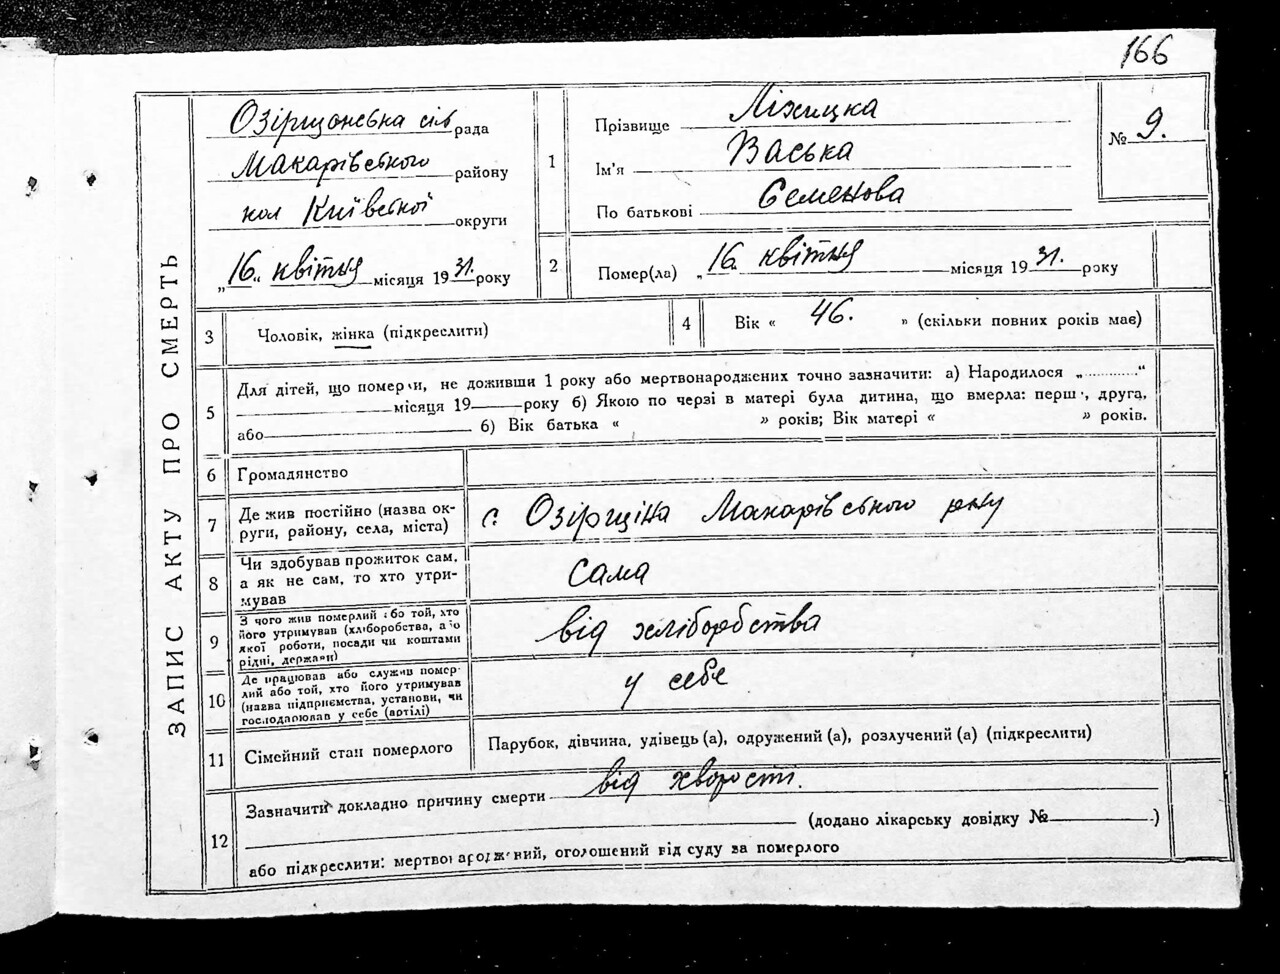 166
ЗАПИС АКТУ ПРО СМЕРТЬ
Озірщонська сіль рада
Макарівського району
кол Київської округи
„16“ квітня місяця 1931. року
1
Прізвище Ліхицка
Ім'я Васька
По батькові Семенова
№ 9.
2
Помер(ла) „16. квітня місяця 1931. року
3
Чоловік, жінка (підкреслити)
4
Вік « 46. » (скільки повних років має)
5
Для дітей, що померли, не доживши 1 року або мертвонароджених точно зазначити: а) Народилося „..........“
місяця 19 року б) Якою по черзі в матері була дитина, що вмерла: перш, друга,
або 6) Вік батька « » років; Вік матері « » років.
6
Громадянство
7
Де жив постійно (назва ок-
руги, району, села, міста)
с. Озірщіна Макарівського р-ну
8
Чи здобував прожиток сам,
а як не сам, то хто утри-
мував
сама
9
З чого жив померлий або той, хто
його утримував (хліборобства, або
якої роботи, посади чи коштами
рідні, держави)
від хліборобства
10
Де працював або служив помер-
лий або той, хто його утримував
(назва підприємства, установи, чи
господарював у себе (артілі)
у себе
11
Сімейний стан померлого
Парубок, дівчина, удівець (а), одружений (а), розлучений (а) (підкреслити)
12
Зазначити докладно причину смерти від хворости.
(додано лікарську довідку № )
або підкреслити: мертвонароджений, оголошений від суду за померлого